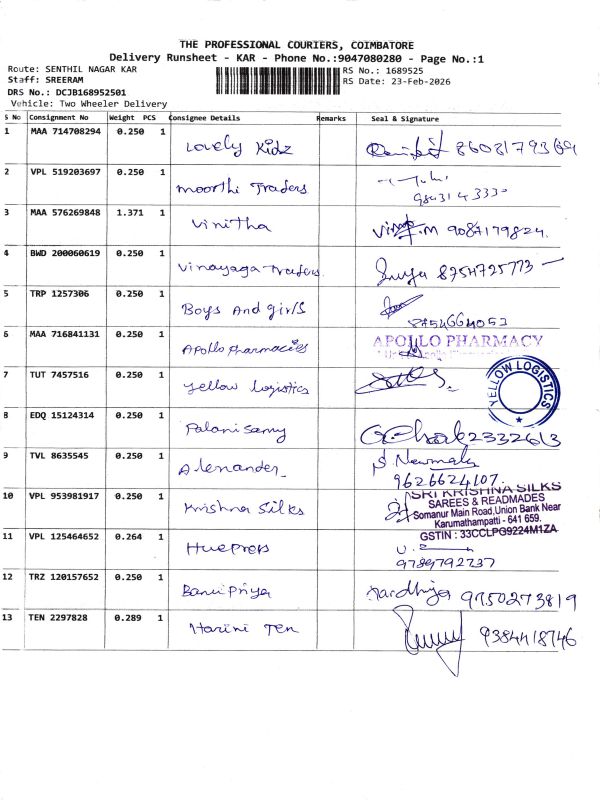 THE PROFESSIONAL COURIERS, COIMBATORE
Delivery Runsheet - KAR - Phone No.:9047080280 - Page No.:1
Route: SENTHIL NAGAR KAR
Staff: SREERAM
DRS No.: DCJB168952501
Vehicle: Two Wheeler Delivery
RS No.: 1689525
RS Date: 23-Feb-2026
S No Consignment No Weight PCS Consignee Details Remarks Seal & Signature
1 MAA 714708294 0.250 1 Lovely Kidz
2 VPL 519203697 0.250 1 Moorthi Traders
3 MAA 576269848 1.371 1 Vinitha 9087179824.
4 BWD 200060619 0.250 1 Vinayaga Traders. 8754725773
5 TRP 1257306 0.250 1 Boys And girls
6 MAA 716841131 0.250 1 Apollo pharmacies APOLLO PHARMACY
7 TUT 7457516 0.250 1 Yellow logistics YELLOW LOGISTICS
8 EDQ 15124314 0.250 1 Palanisamy
9 TVL 8635545 0.250 1 Alexander 9626624107.
10 VPL 953981917 0.250 1 Krishna Silks
SRI KRISHNA SILKS
SAREES & READMADES
Somanur Main Road,Union Bank Near
Karumathampatti - 641 659.
GSTIN : 33CCLPG9224M1ZA
11 VPL 125464652 0.264 1
12 TRZ 120157652 0.250 1 Banu Priya 9750273819
13 TEN 2297828 0.289 1 Harini Ten 9384418746